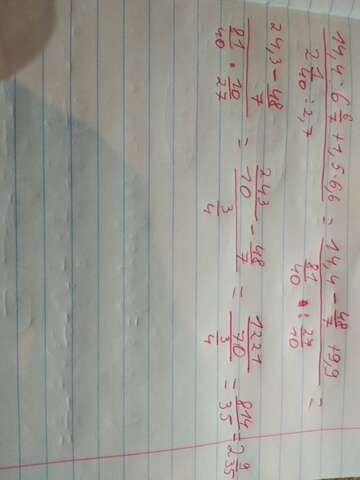 (14,4 - 6 6/7 + 1,5 · 6,6) / (2 1/40 : 2,7) = (14,4 - 48/7 + 9,9) / (81/40 : 27/10) =
(24,3 - 48/7) / (81/40 · 10/27) = (243/10 - 48/7) / (3/4) = (1221/70) / (3/4) = 814/35 = 2 9/35